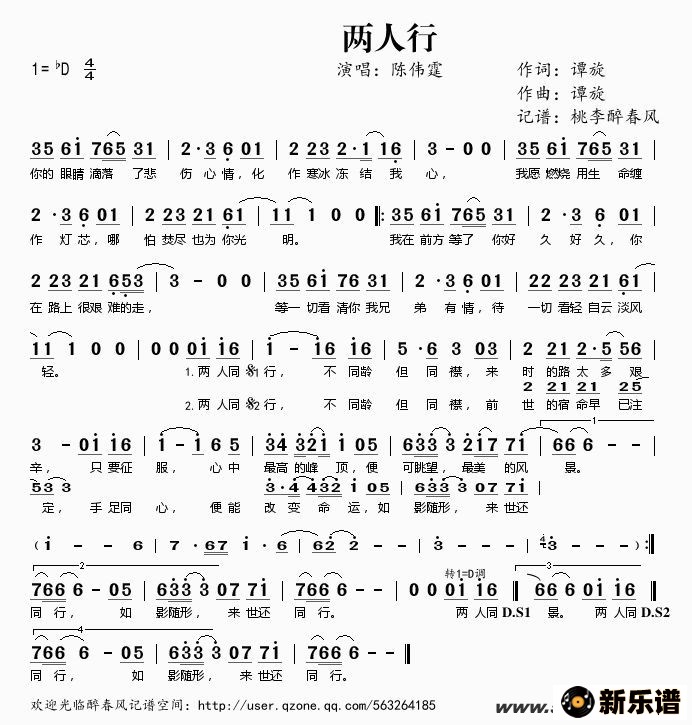 两人行
1= ♭D 4/4 演唱：陈伟霆 作词：谭旋
作曲：谭旋
记谱：桃李醉春风
35 61 765 31 | 2 · 3 6 01 | 2 23 2·1 16 | 3 - 0 0 | 35 61 765 31 |
你的 眼睛 滴落 了悲 伤 心 情，化 作 寒冰 冻 结 我 心， 我愿 燃烧 用生 命缠
2 · 3 6 01 | 2 23 21 61 | 11 1 0 0 ‖: 35 61 765 31 | 2 · 3 6 01 |
作 灯 芯，哪 怕 焚尽 也为 你光 明。 我在 前方 等了 你好 久 好 久，你
2 23 21 653 | 3 - 0 0 | 35 61 76 31 | 2 · 3 6 01 | 22 23 21 61 |
在 路上 很艰 难的 走， 等一 切看 清你 我兄 弟 有 情，待 一切 看轻 自云 淡风
11 1 0 0 | 0 0 01 16 | 1 - 16 16 | 5 · 6 3 03 | 2 21 2·5 56 |
轻。 1.两 人同 𝄋1 行， 不 同龄 但 同 襟，来 时 的路 太 多 艰
2 21 21 25
2.两 人同 𝄋2 行， 不 同龄 但 同 襟，前 世 的宿 命早 已注
1
3 - 01 16 | 1 - 1 6 5 | 34 321 1 05 | 6333 217 71 | 66 6 - |
辛， 只 要征 服， 心 中 最高 的峰 顶，便 可眺望，最美 的风 景。
533 3 3·4 432 1 05 | 6333 07 71
定， 手 足同 心， 便 能 改 变 命 运，如 影随形，来 世还
（1 - - 6 | 7 · 67 1 · 6 | 62 2 - - | 3 - - - | 2/4 3 - ）:‖
2
766 6 - 05 | 6333 07 71 | 766 6 - - | 0 0 01 16 ‖ 66 6 01 16 ‖
转1=D调
3
同 行， 如 影随形，来 世还 同 行。 两 人同 D.S1 景。 两 人同 D.S2
4
766 6 - 05 | 6333 07 71 | 766 6 - - ‖
同 行， 如 影随形，来 世还 同 行。
欢迎光临醉春风记谱空间：http://user.qzone.qq.com/563264185
www.
新乐谱